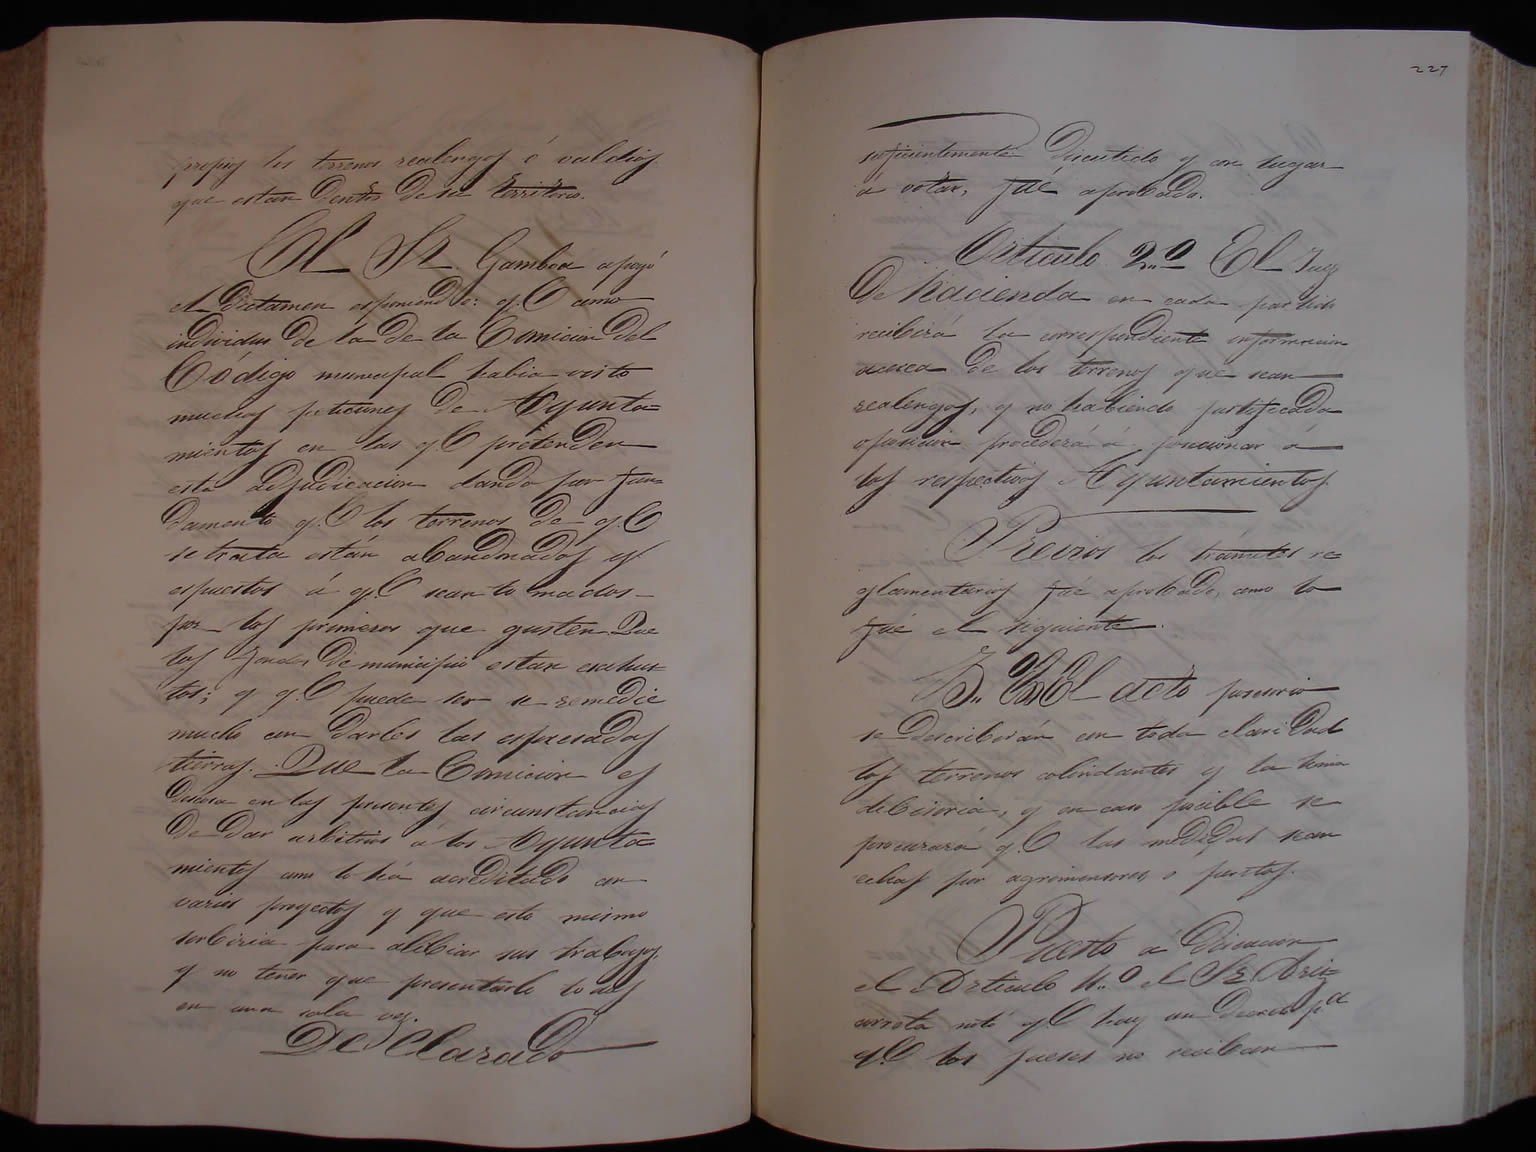 propios los terrenos realengos ó valdios
que estan dentro de su territorio.
El Sr. Gamboa apoyó
el dictamen esponiendo: q.e como
individuo de la de la Comicion del
Código municipal habia visto
muchas peticiones de Ayunta=
mientos en las q.e pretenden
esta adjudicacion dando por fun=
damento q.e los terrenos de q.e
se trata están abandonados y
espuestos á q.e sean tomados
por los primeros que gusten. Que
los fondos de municipio estan exahus=
tos; y q.e puede ser se remedie
mucho con darles las espresadas
tierras. Que la Comicion es
deseosa en las presentes circunstancias
de dar arbitrios á los Ayunta=
mientos como lo há acreditado en
varios proyectos y que esto mismo
serbiria para alibiar sus trabajos
y no tener que presentarlo todos
en una sola vez.
Declarado
227
suficientemente discutido y con lugar
á votar, fué aprobado.
Articulo 2.o El Juez
de hacienda en cada partido
recibirá la correspondiente informacion
acerca de los terrenos que sean
realengos, y no habiendo justificada
oposicion procederá á posecionar á
los respectivos Ayuntamientos.
Previos los trámites re=
glamentarios fué aprobado, como lo
fué el siguiente.
3.o En El acto posesorio
se describirán con toda claridad
los terrenos colindantes y la linea
debisoria, y en caso posible se
procurará q.e las medidas sean
echas por agrimensores o peritos.
Puesto á discucion
el Articulo 4.o el Sr. Azi=
correta notó q.e hay un Decreto p.a
q.e los jueses no reciban